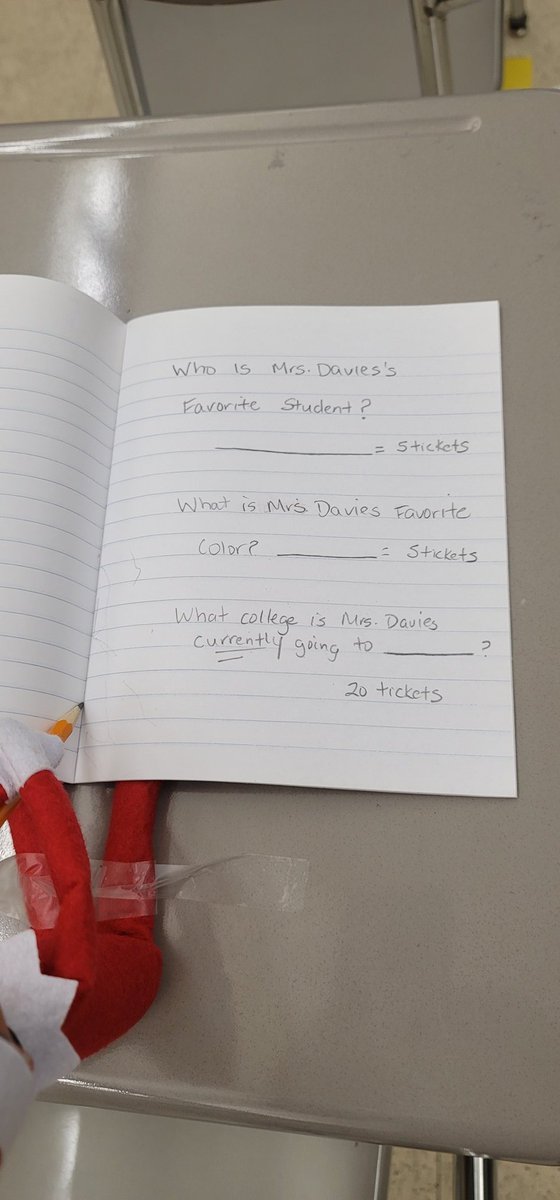 Who Is Mrs. Davies's
Favorite Student?
____________ = 5tickets
What is Mrs Davies Favorite
Color? ________ = 5tickets
What college is Mrs. Davies
currently going to _______?
20 tickets